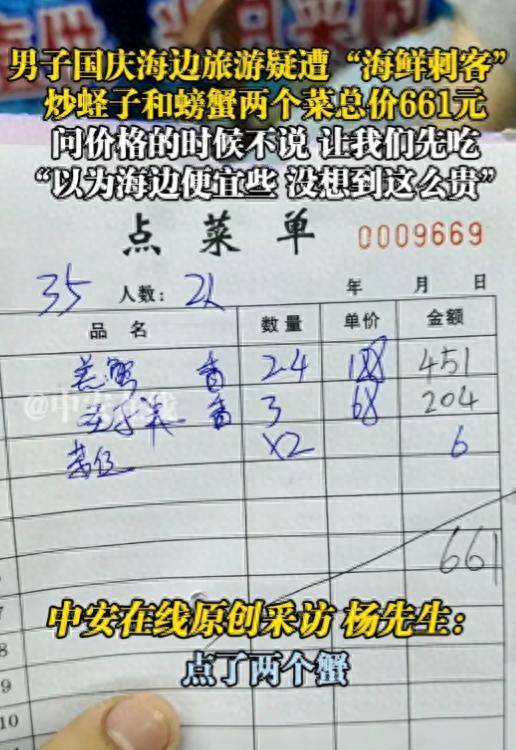 男子国庆海边旅游疑遭“海鲜刺客”
炒蛏子和螃蟹两个菜总价661元
问价格的时候不说 让我们先吃
“以为海边便宜些 没想到这么贵”
点菜单 0009669
35 人数: 21 年 月 日
品名 数量 单价 金额
蟹 2.4 188 451
3 68 204
@中安在线
X2 6
661
中安在线原创采访 杨先生:
点了两个蟹
8
9
10